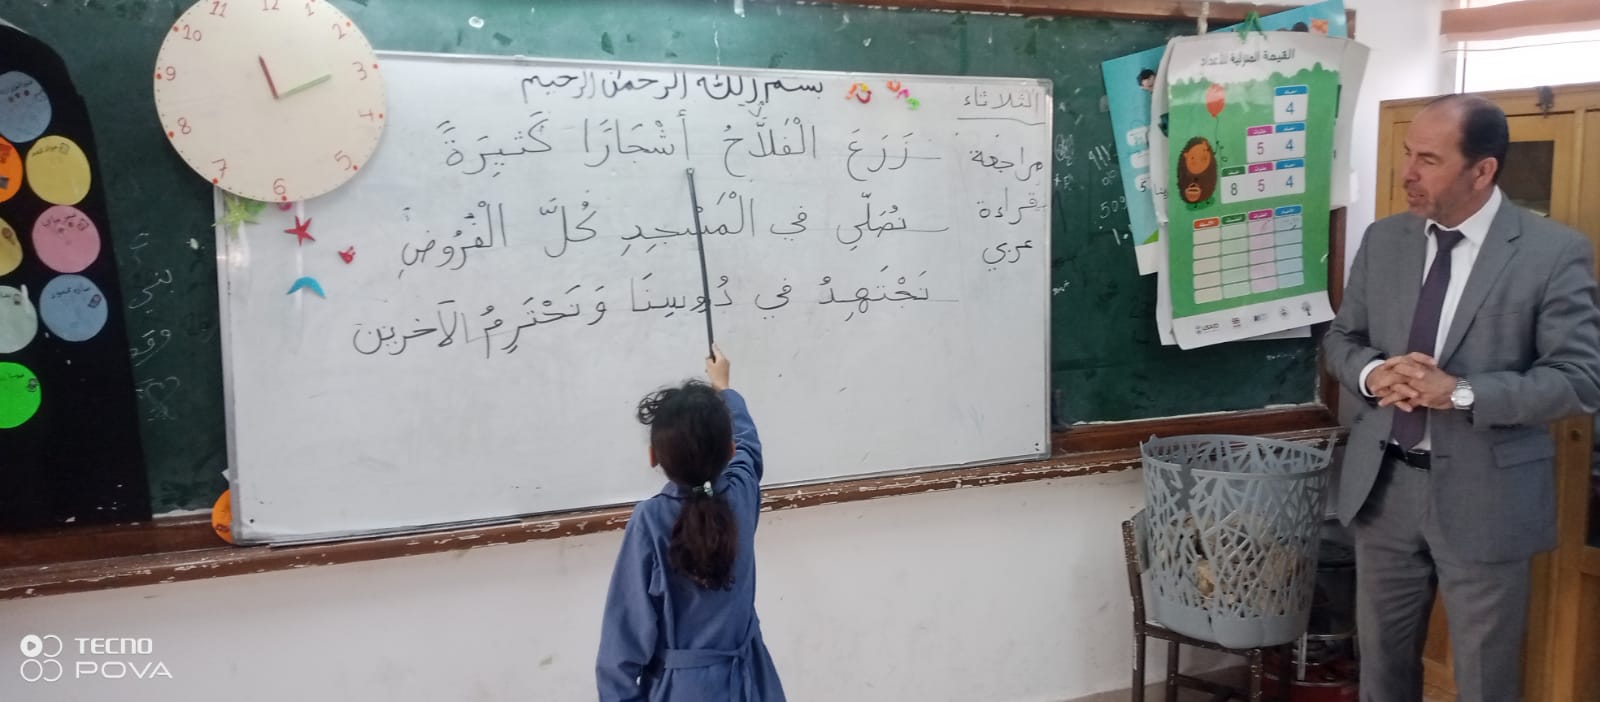 بسم الله الرحمن الرحيم
الثلاثاء
مراجعة
قراءة
عربي
زَرَعَ الْفَلَّاحُ أَشْجَارًا كَثِيرَةً
نُصَلِّي فِي الْمَسْجِدِ كُلَّ الْفُرُوضِ
نَجْتَهِدُ في دُروسِنَا وَنَحْتَرِمُ الآخرين
11 12 1
10 2
9 3
8 4
7 6 5
القيمة المنزلية للأعداد
4
5 4
8 5 4
USAID
TECNO
POVA